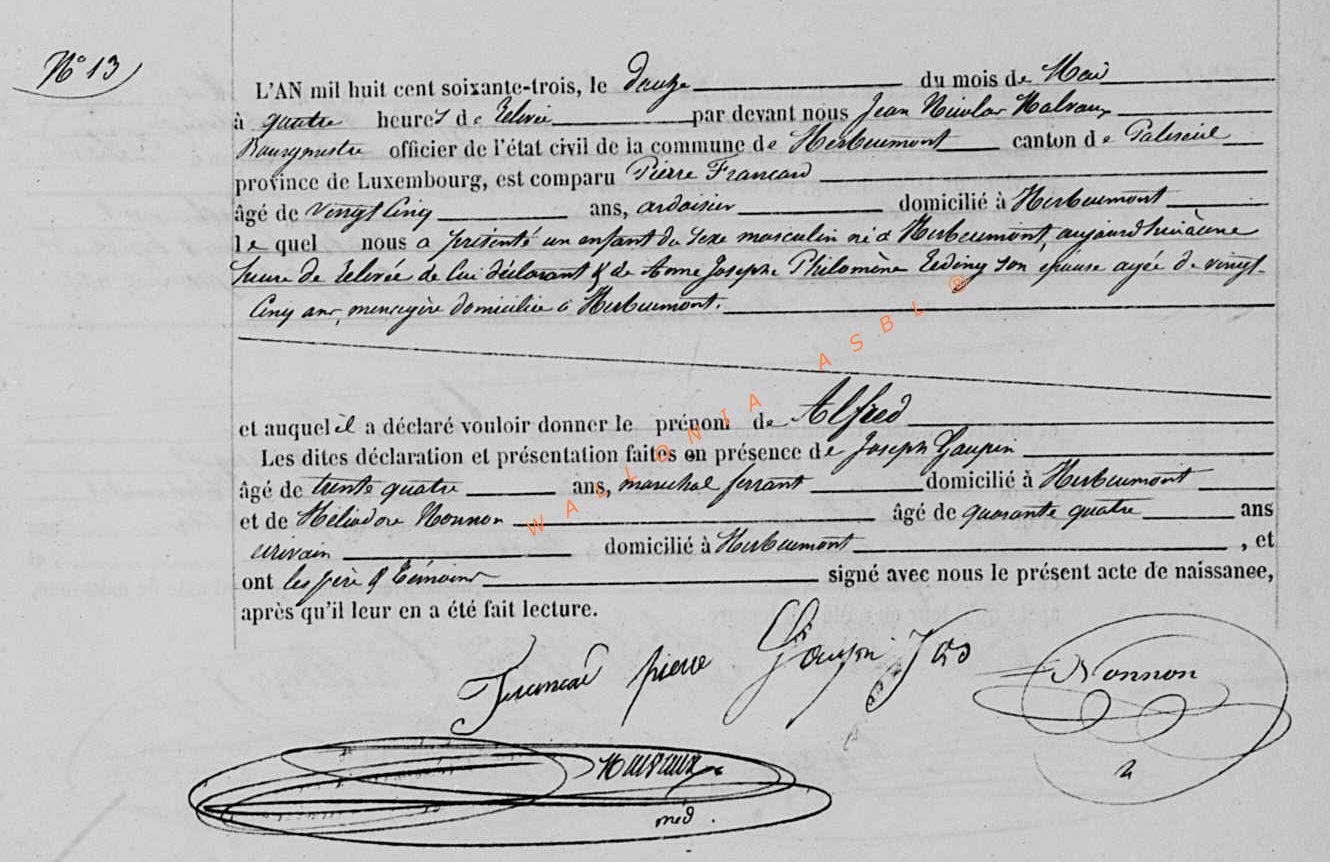 N° 13
L'AN mil huit cent soixante-trois, le douze du mois de Mai
à quatre heures de relevée par devant nous Jean Nicolas Malvaux
Bourgmestre officier de l'état civil de la commune de Herbeumont canton de Paliseul
province de Luxembourg, est comparu Pierre Francard
âgé de vingt cinq ans, ardoisier domicilié à Herbeumont
lequel nous a présenté un enfant du sexe masculin né à Herbeumont, aujourd'hui à une
heure de relevée de lui déclarant & de Anne Josephe Philomène son épouse agée de vingt-
cinq ans, menagère domiciliée à Herbeumont.
et auquel il a déclaré vouloir donner le prénom de Alfred
Les dites déclaration et présentation faites en présence de Joseph Goupin
âgé de trente quatre ans, marechal ferrant domicilié à Herbeumont
et de Héliodore Nonnon âgé de quarante quatre ans
ecrivain domicilié à Herbeumont, et
ont les père & témoins signé avec nous le présent acte de naissance,
après qu'il leur en a été fait lecture.
Francard pierre Goupin Jos Nonnon
Malvaux
méd.
WALLONIA ASBL ®